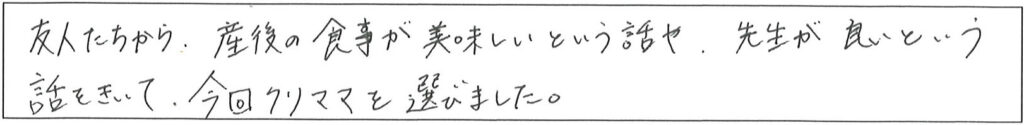 友人たちから、産後の食事が美味しいという話や、先生が良いという
話をきいて、今回クリママを選びました。